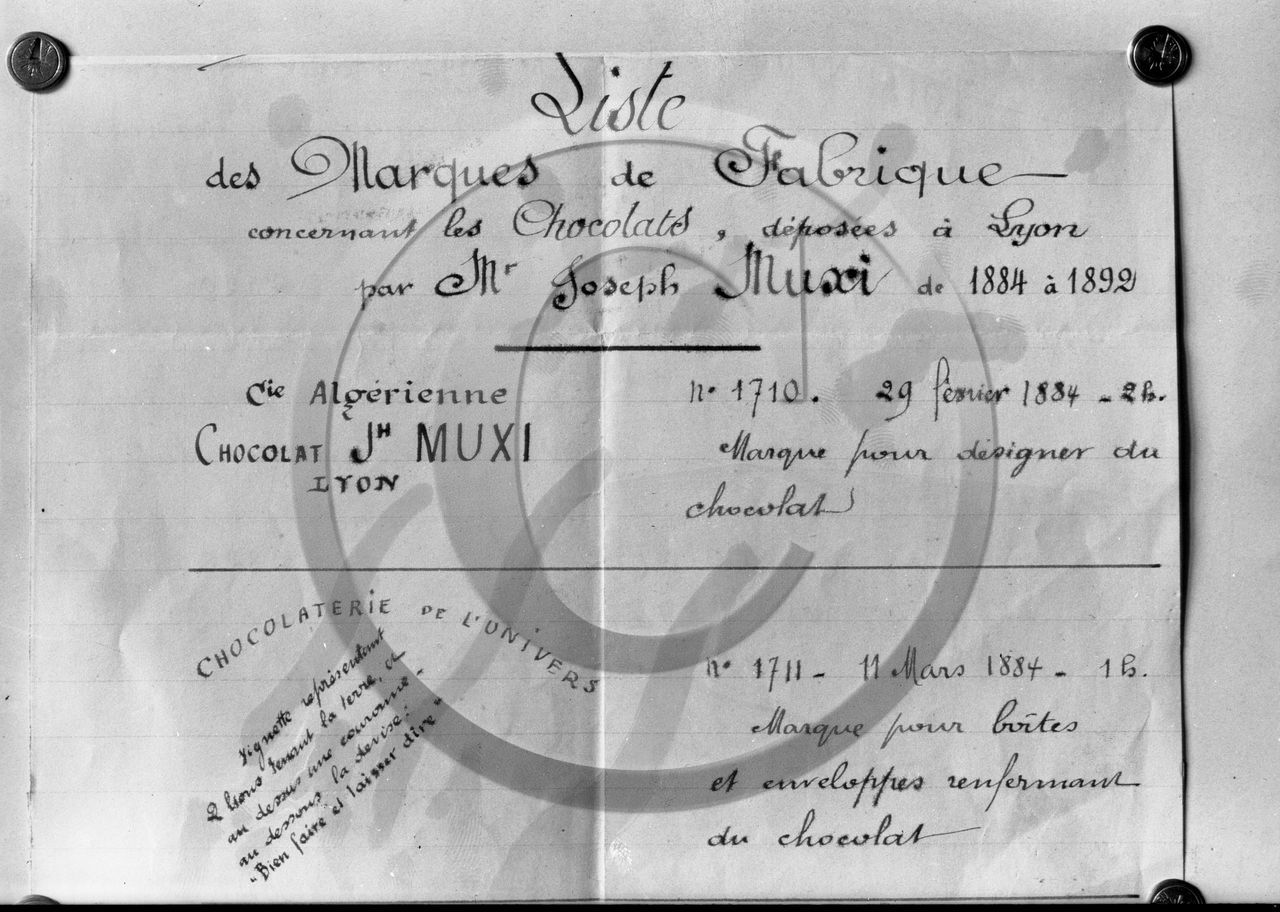 Liste
des Marques de Fabrique
concernant les Chocolats, déposées à Lyon
par Mr Joseph Muxi de 1884 à 1892
Cie Algérienne
CHOCOLAT JH MUXI
LYON
n° 1710. 29 février 1884 - 2h.
Marque pour désigner du
chocolat
CHOCOLATERIE DE L'UNIVERS
Vignette représentant
2 lions tenant la terre, et
au dessus une couronne -
au dessous la devise:
"Bien faire et laisser dire"
n° 1711 - 11 Mars 1884 - 1h.
Marque pour boîtes
et enveloppes renfermant
du chocolat